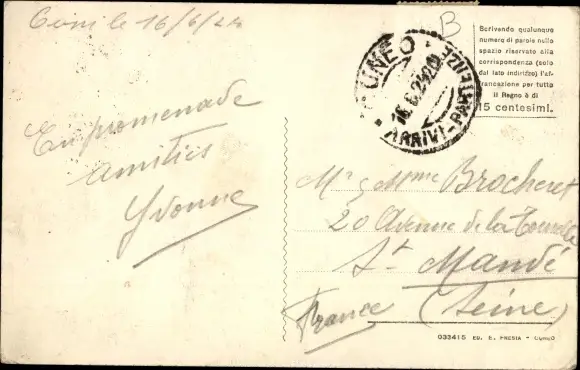 Coni le 16/6/24
En promenade
amitiés
Yvonne
B
CUNEO
16.6.24
ARRIVI-PARTENZE
Scrivendo qualunque
numero di parole nello
spazio riservato alla
corrispondenza (solo
dal lato indirizzo) l'af-
francazione per tutto
il Regno è di
15 centesimi.
Mr & Mme Brocheret
20 Avenue de la Tourelle
St Mandé
(Seine)
France
033415 ED. E. PRESIA - CUNEO